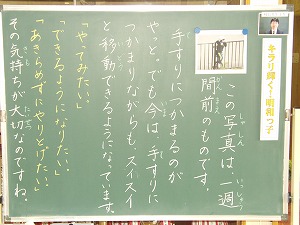 キラリ輝く！昭和っ子
この写真は、一週
しゃしん
いっしゅう
間前のものです。
かんまえ
手すりにつかまるのが
やっと。でも今は、手すりに
つかまりながらも、スイスイ
と移動できるようになっています。
「やってみたい。」
「できるようになりたい。」
「あきらめずにやりとげたい。」
その気持ちが大切なのですね。